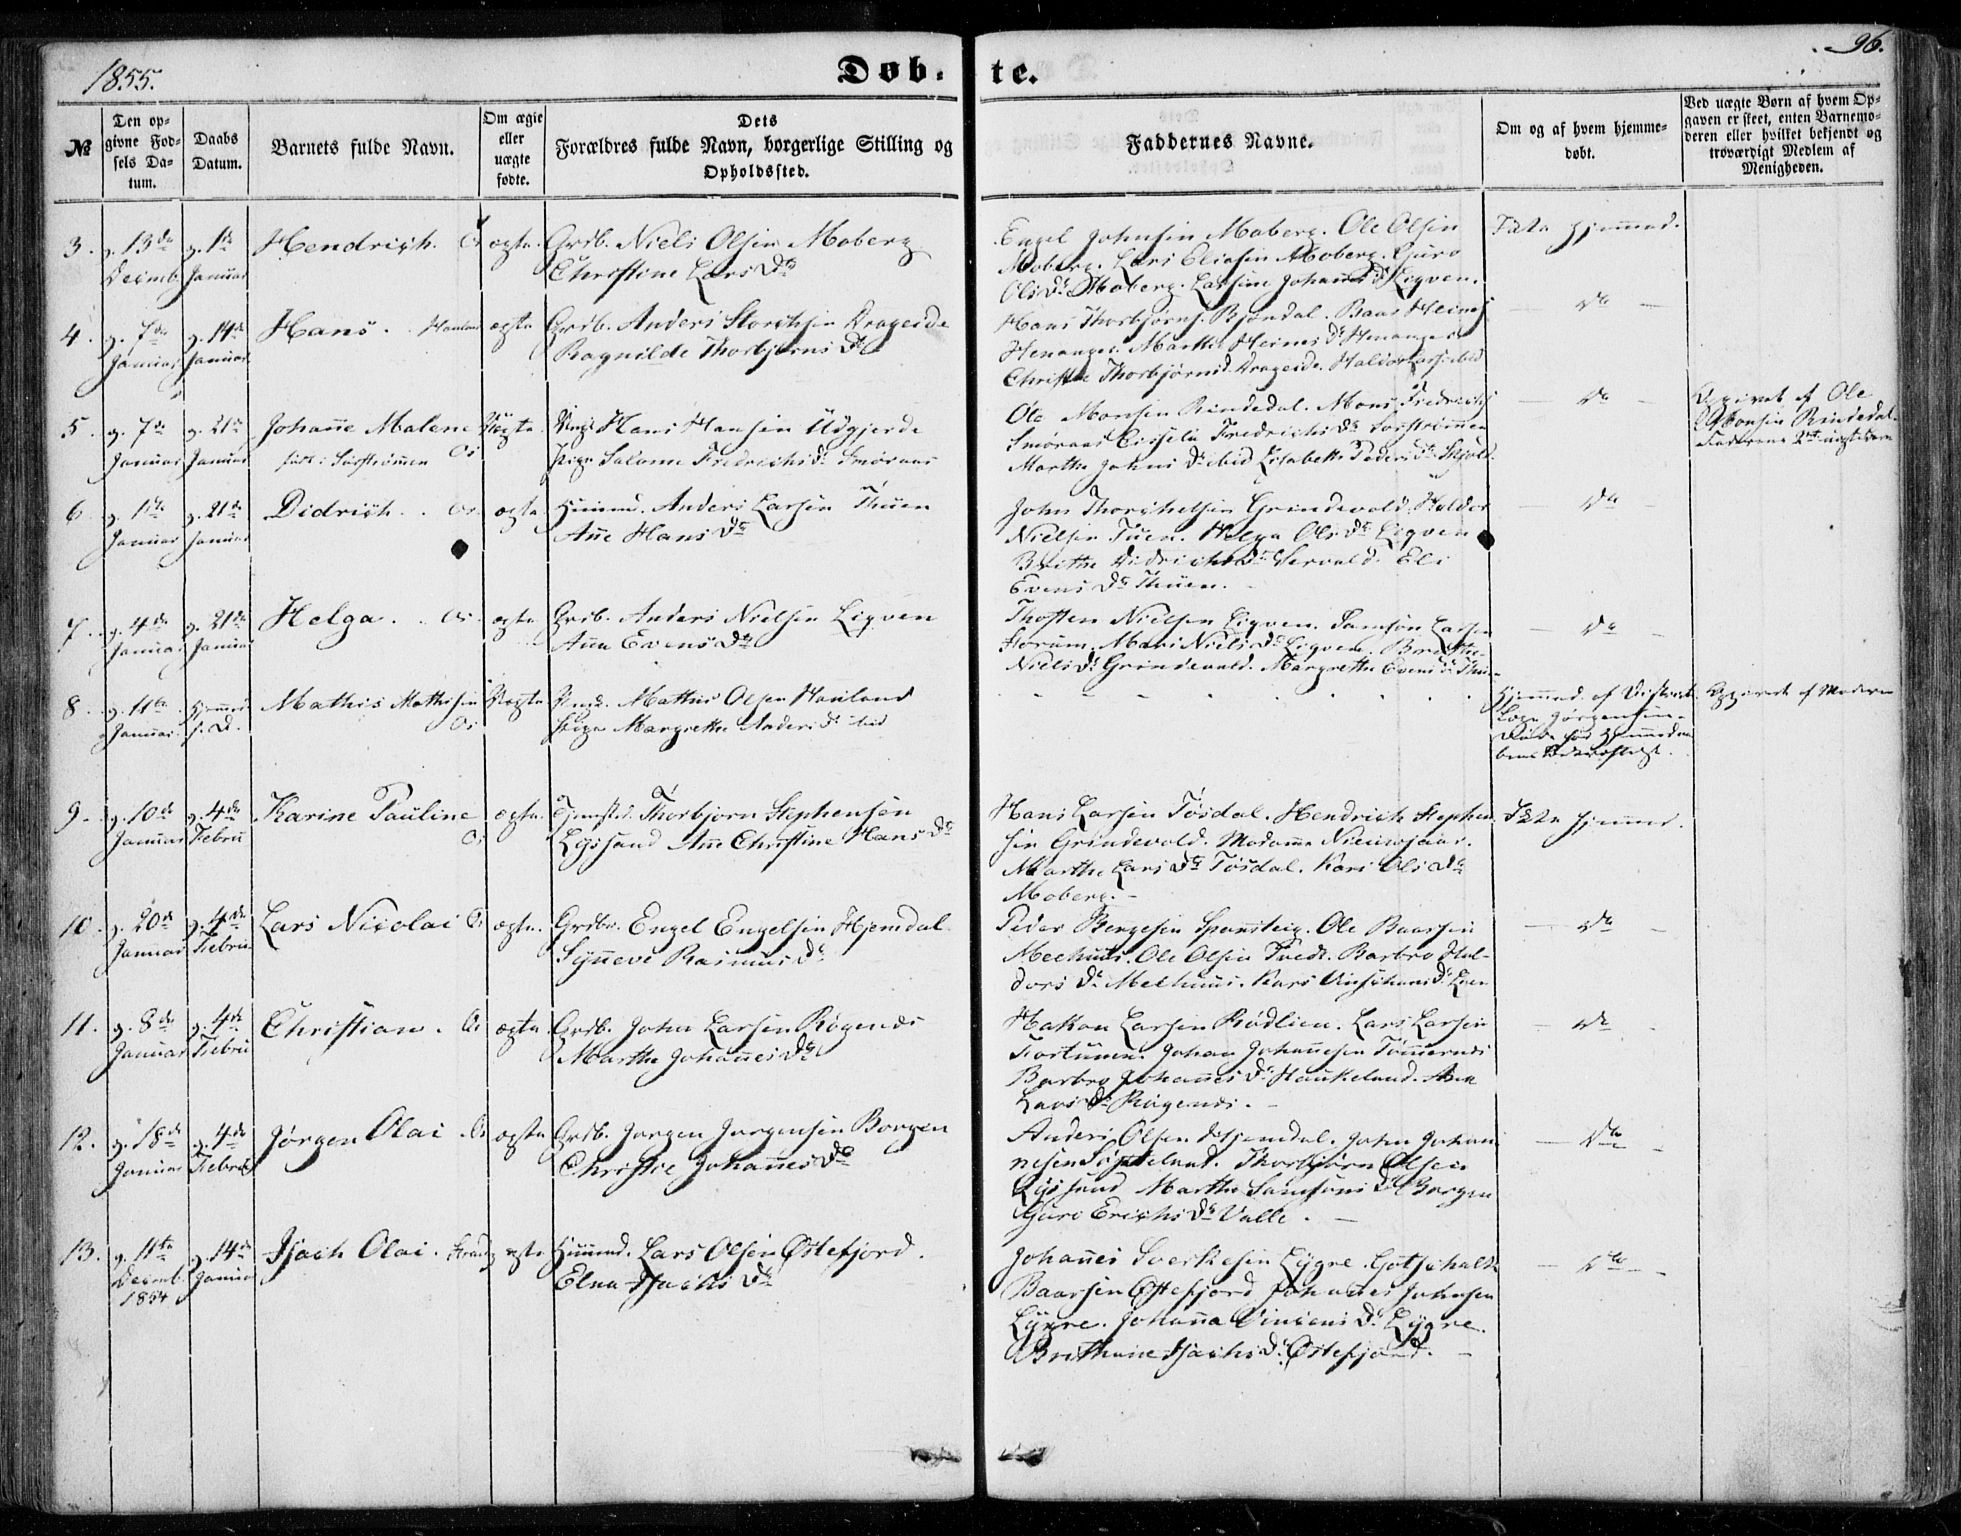 1855.
Døb-
te.
96.
№
Den op-
givne Fød-
sels Da-
tum.
Daabs
Datum.
Barnets fulde Navn.
Om ægte
eller
uægte
fødte.
Dets
Forældres fulde Navn, borgerlige Stilling og
Opholdssted.
Faddernes Navne.
Om og af hvem hjemme-
døbt.
Ved uægte Børn af hvem Op-
gaven er skeet, enten Barnemo-
deren eller hvilket bekjendt og
troværdigt Medlem af
Menigheden.
3. 13de Decemb. 1ste Januar
Hendrich. Os ægte
Grdb. Niels Olsen Moberg
Christine Lars Dr
Engel Johnsen Moberg. Ole Olsen
Moberg. Lars Eliasen Moberg. Guro
Ols Dr Moberg. Johannes Dr Ligven.
Ikke hjemmed.
4. 7de Januar 14de Januar
Hans. ægte
Grdb. Anders Drageide
Ragnilde Thorbjørns Dr
Hans Thorbjørns. Bjøndal. Baar Heines
Henanger. Marthe Heines Dr Henanger
Christie Thorbjørns Dr Drageide. Haldor Lars. ibid
Do
5. 7de Januar 21de Januar
Johanne Malene
Os
Uægte
Hans Hansen Udgjerde
Pige Salome Fredrichs Dr Smøraas
Ole Monsen Rindedal. Mons Fredrichs
Smøraas Fredrichs Dr
Marthe Johns Dr ibid Elisabeth Peders Dr Skjold.
Do
Opgivet af Ole
Monsen Rindedal.
6. 1ste Januar 21de Januar
Didrich. Os. ægte
Huusmd. Anders Larsen Thuen
Ane Hans Dr
John Thorchelsen Grindevold. Haldor
Nielsen Tuen. Helga Ols Dr Ligven
Brithe Didrichs Dr Eli
Evens Dr Thuen.
Do
7. 4de Januar 21de Januar
Helga. Os. ægte
Grdb. Anders Nielsen Ligven
Anna Evens Dr
Thosten Nielsen Ligven. Samson Larsen
Mari Niels Dr Ligven. Brithe
Niels Dr Grindevold. Margrethe Evens Dr Thuen
Do
8. 11te Januar Hjemme d.
Mathis Mathisen
Os
Uægte
Mathis Olsen Hauland
Pige Margrethe Anders Dr ibid
Hjemmed. af District
Læge Jørgensen.
Opgivet af Moderen
9. 10de Januar 4de Febru
Karine Pauline
Os
ægte
Thorbjørn Stephensen
Lyssand Ane Christine Hans Dr
Hans Larsen Tøsdal. Hendrich Stephen
sen Grindevold. Madame
Marthe Lars Dr Tøsdal. Kari Ols Dr
Moberg.
Ikke hjemmed.
10. 20de Januar 4de Febru
Lars Nicolai Os ægte
Grdbr. Engel Engelsen Hjemdal
Synneve Rasmus Dr
Peder Børgesen Ole Baarsen
Ole Olsen Tvedt. Barbro Hal-
dors Dr Melhuus. Kari
Do
11. 8de Januar 4de Febru
Christian. Os ægte
Grdb. John Larsen Røgenes
Marthe Johannes Dr
Hakon Larsen Rødlien. Lars Larsen
Johan Johannesen
Barbro Johannes Dr Haukeland. Ane
Lars Dr Røgenes.
Do
12. 18de Januar 4de Febru
Jørgen Olai. Os ægte
Grdb. Jørgen Jørgensen Borgen
Christie Johannes Dr
Anders Olsen Hjemdal. John Johan
nesen Thorbjørn Olsen
Lyssand Marthe Samsons Dr Borgen
Guri Erichs Dr Valle.
Do
13. 11te Decemb. 1854 14de Januar
Isach Olai. ægte
Huusmd. Lars Olsen Østefjord.
Elna Isachs Dr
Johannes Sverkesen Lygre. Gotschalk
Baarsen Østefjord Johannes Johnsen
Lygre. Johanna Dr Lygre.
Brithane Isachs Dr Østefjord.
Do